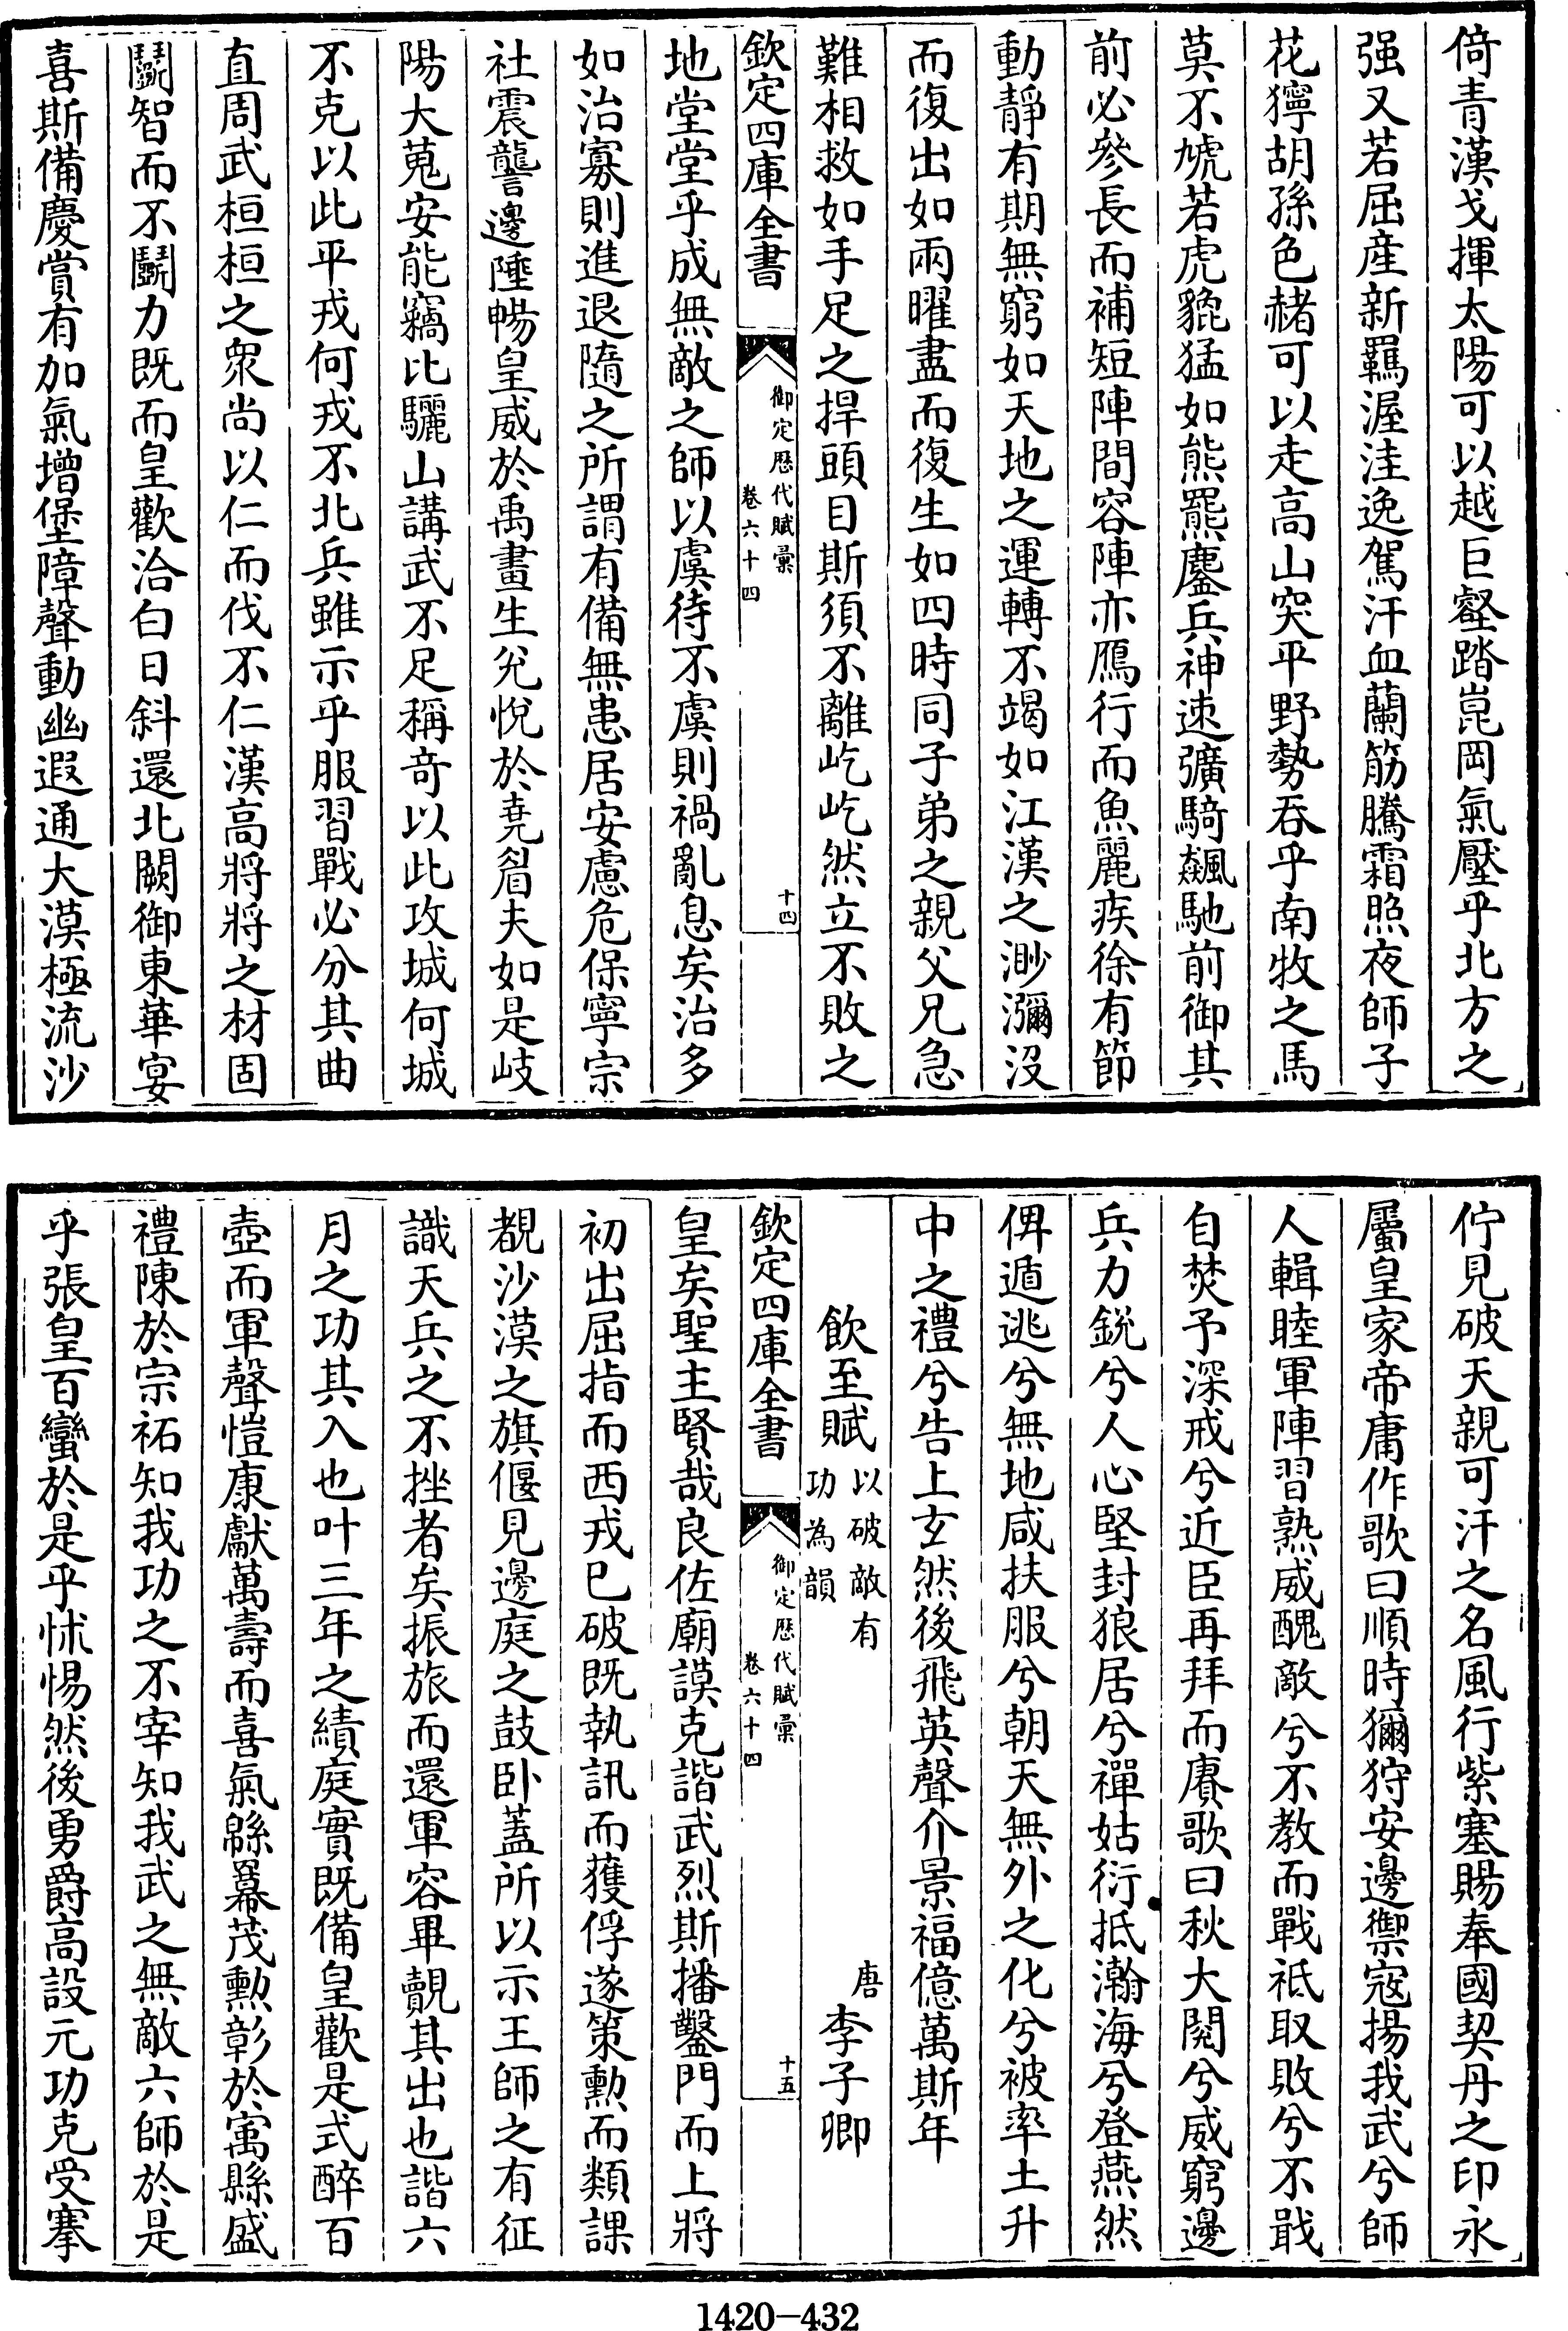 倚青漢戈揮太陽可以越巨壑踏崑岡氣壓乎北方之
强又若屈産新羈渥洼逸駕汗血蘭筋騰霜照夜師子
花獰胡孫色赭可以走高山突平野勢吞乎南牧之馬
莫不虓若虎貔猛如熊羆鏖兵神速彍騎飆馳前御其
前必參長而補短陣間容陣亦鴈行而魚麗疾徐有節
動靜有期無窮如天地之運轉不竭如江漢之渺瀰没
而復出如兩曜盡而復生如四時同子弟之親父兄急
難相救如手足之捍頭目斯須不離屹屹然立不敗之
欽定四庫全書
御定歴代賦彙
卷六十四
十四
地堂堂乎成無敵之師以虞待不虞則禍亂息矣治多
如治寡則進退隨之所謂有備無患居安慮危保寧宗
社震讋邊陲暢皇威於禹畫生兊悅於堯眉夫如是岐
陽大蒐安能竊比驪山講武不足稱奇以此攻城何城
不克以此平戎何戎不北兵雖示乎服習戰必分其曲
直周武桓桓之衆尚以仁而伐不仁漢高將將之材固
鬭智而不鬭力既而皇歡洽白日斜還北闕御東華宴
喜斯備慶賞有加氣增堡障聲動幽遐通大漠極流沙
佇見破天親可汗之名風行紫塞賜奉國契丹之印永
屬皇家帝庸作歌曰順時獮狩安邊禦寇揚我武兮師
人輯睦軍陣習熟威醜敵兮不教而戰祗取敗兮不戢
自焚予深戒兮近臣再拜而賡歌曰秋大閱兮威窮邊
兵力銳兮人心堅封狼居兮禪姑衍抵瀚海兮登燕然
俾遁逃兮無地咸扶服兮朝天無外之化兮被率土升
中之禮兮告上玄然後飛英聲介景福億萬斯年
飲至賦
以破敵有
功為韻
唐
李子卿
欽定四庫全書
御定歴代賦彙
卷六十四
十五
皇矣聖主賢哉良佐廟謨克諧武烈斯播鑿門而上將
初出屈指而西戎巳破既執訊而獲俘遂策勲而類課
覩沙漠之旗偃見邊庭之鼓卧蓋所以示王師之有征
識天兵之不挫者矣振旅而還軍容畢覿其出也諧六
月之功其入也叶三年之績庭實既備皇歡是式醉百
壺而軍聲愷康獻萬壽而喜氣緜羃茂勲彰於寓縣盛
禮陳於宗祏知我功之不宰知我武之無敵六師於是
乎張皇百蠻於是乎怵惕然後勇爵高設元功克受搴
1420-432